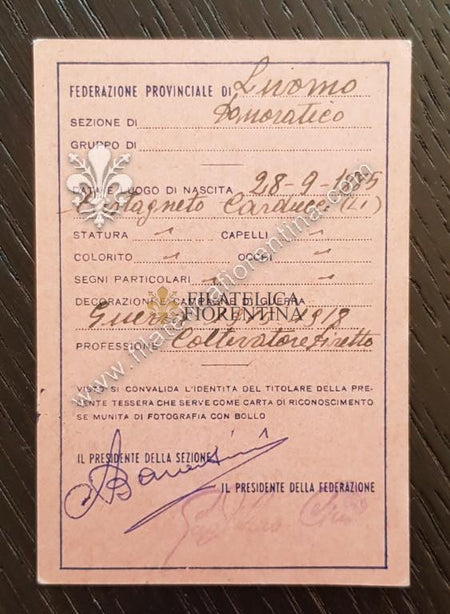 FEDERAZIONE PROVINCIALE DI Livorno
SEZIONE DI Donoratico
GRUPPO DI
DATA E LUOGO DI NASCITA 28-9-1885
Castagneto Carducci (LI)
STATURA " CAPELLI "
COLORITO " OCCHI "
SEGNI PARTICOLARI "
DECORAZIONI E CAMPAGNE DI GUERRA
FILATELICA
FIORENTINA
www.filateliafiorentina.com
Guerra
PROFESSIONE Coltivatore diretto
VISTO SI CONVALIDA L'IDENTITÀ DEL TITOLARE DELLA PRE-
SENTE TESSERA CHE SERVE COME CARTA DI RICONOSCIMENTO
SE MUNITA DI FOTOGRAFIA CON BOLLO
IL PRESIDENTE DELLA SEZIONE
IL PRESIDENTE DELLA FEDERAZIONE